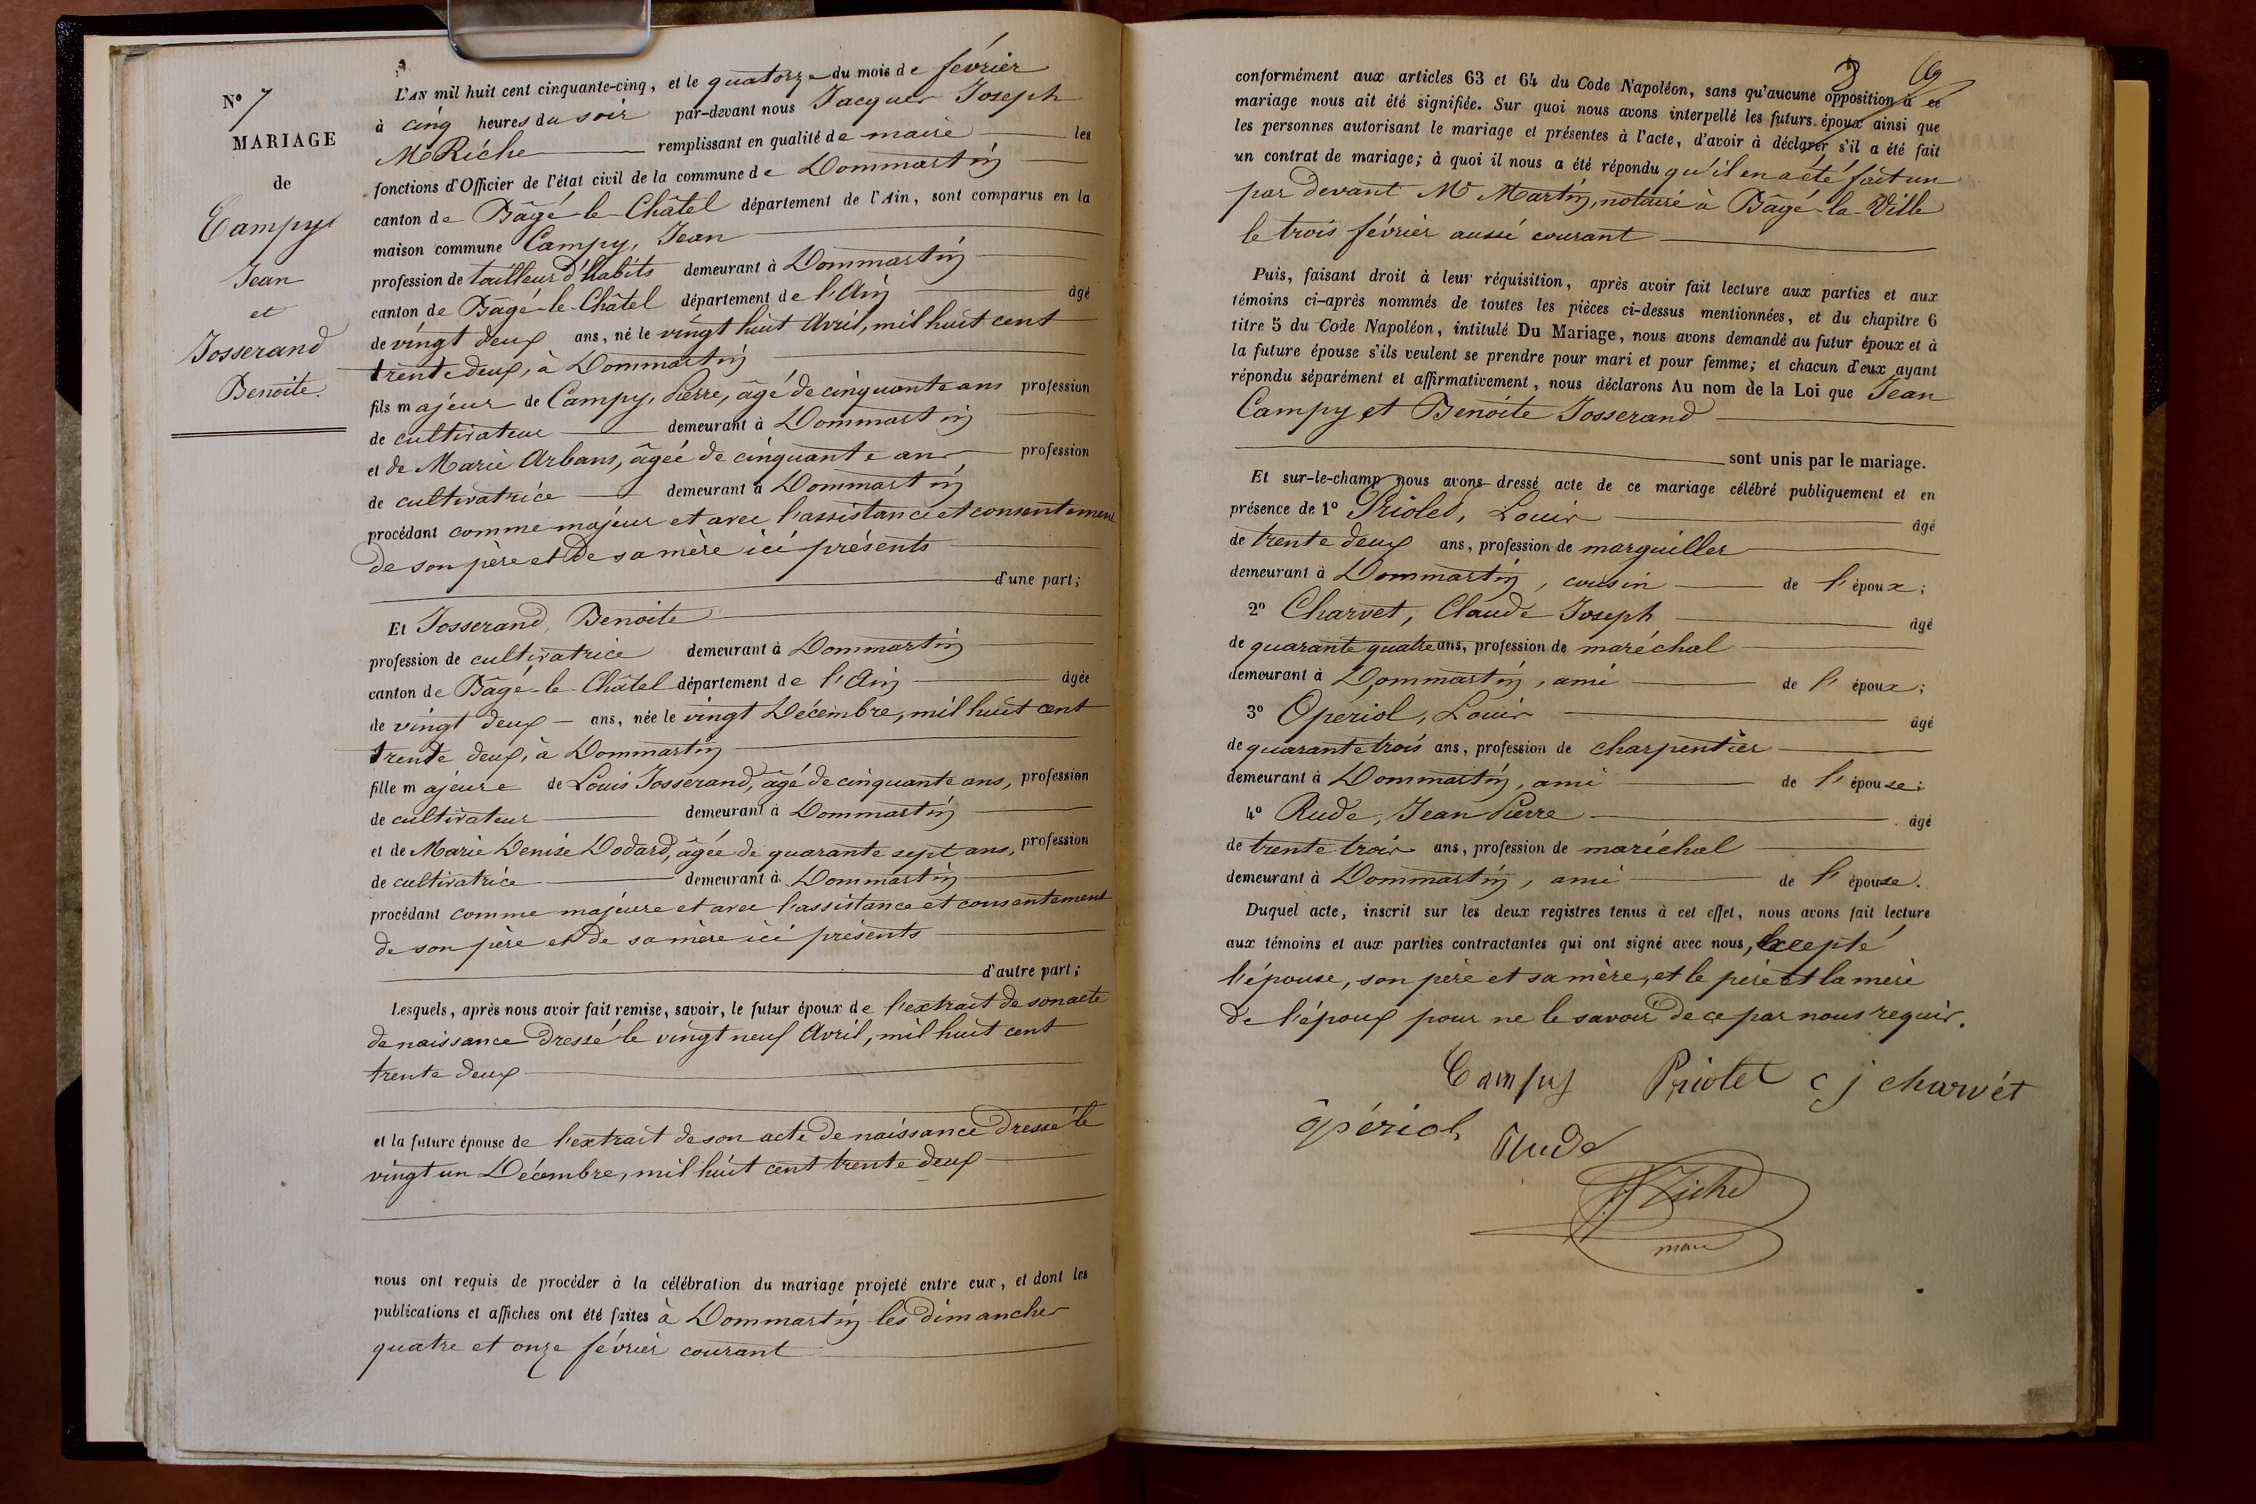 N° 7
MARIAGE
de
Campy
Jean
et
Josserand
Benoite.
L'AN mil huit cent cinquante-cinq, et le quatorze du mois de février
à cinq heures du soir par-devant nous Jacques Joseph
Riche remplissant en qualité de maire les
fonctions d'Officier de l'état civil de la commune de Dommartin
canton de Bâgé-le-Châtel département de l'Ain, sont comparus en la
maison commune Campy, Jean
profession de tailleur d'habits demeurant à Dommartin
canton de Bâgé-le-Châtel département de l'Ain âgé
de vingt deux ans, né le vingt huit Avril, mil huit cent
trente deux, à Dommartin
fils majeur de Campy, Pierre, âgé de cinquante ans profession
de cultivateur demeurant à Dommartin
et de Marie Arbans, âgée de cinquante ans profession
de cultivatrice demeurant à Dommartin
procédant comme majeur et avec l'assistance et consentement
de son père et de sa mère ici présents
d'une part;
Et Josserand, Benoite
profession de cultivatrice demeurant à Dommartin
canton de Bâgé-le-Châtel département de l'Ain âgée
de vingt deux ans, née le vingt Décembre, mil huit cent
trente deux, à Dommartin
fille majeure de Louis Josserand, âgé de cinquante ans, profession
de cultivateur demeurant à Dommartin
et de Marie Denise Dodard, âgée de quarante sept ans, profession
de cultivatrice demeurant à Dommartin
procédant comme majeure et avec l'assistance et consentement
de son père et de sa mère ici présents
d'autre part;
Lesquels, après nous avoir fait remise, savoir, le futur époux de l'extrait de son acte
de naissance dressé le vingt neuf Avril, mil huit cent
trente deux
et la future épouse de l'extrait de son acte de naissance dressé le
vingt un Décembre, mil huit cent trente deux
nous ont requis de procéder à la célébration du mariage projeté entre eux, et dont les
publications et affiches ont été faites à Dommartin les dimanches
quatre et onze février courant
conformément aux articles 63 et 64 du Code Napoléon, sans qu'aucune opposition à ce
mariage nous ait été signifiée. Sur quoi nous avons interpellé les futurs époux ainsi que
les personnes autorisant le mariage et présentes à l'acte, d'avoir à déclarer s'il a été fait
un contrat de mariage; à quoi il nous a été répondu qu'il en a été fait un
par devant Me Martin, notaire à Bâgé-la-Ville
le trois février aussi courant
Puis, faisant droit à leur réquisition, après avoir fait lecture aux parties et aux
témoins ci-après nommés de toutes les pièces ci-dessus mentionnées, et du chapitre 6
titre 5 du Code Napoléon, intitulé Du Mariage, nous avons demandé au futur époux et à
la future épouse s'ils veulent se prendre pour mari et pour femme; et chacun d'eux ayant
répondu séparément et affirmativement, nous déclarons Au nom de la Loi que Jean
Campy et Benoite Josserand
sont unis par le mariage.
Et sur-le-champ nous avons dressé acte de ce mariage célébré publiquement et en
présence de 1° Priolet, Louis âgé
de trente deux ans, profession de marguiller
demeurant à Dommartin, cousin de l'époux;
2° Charvet, Claude Joseph âgé
de quarante quatre ans, profession de maréchal
demeurant à Dommartin, ami de l'époux;
3° Opériol, Louis âgé
de quarante trois ans, profession de charpentier
demeurant à Dommartin, ami de l'épouse;
4° Rude, Jean Pierre âgé
de trente trois ans, profession de maréchal
demeurant à Dommartin, ami de l'épouse.
Duquel acte, inscrit sur les deux registres tenus à cet effet, nous avons fait lecture
aux témoins et aux parties contractantes qui ont signé avec nous, excepté
l'épouse, son père et sa mère, et le père et la mère
de l'époux pour ne le savoir de ce par nous requis.
Campy Priolet c j charvét
opériol Rude
Riche
maire